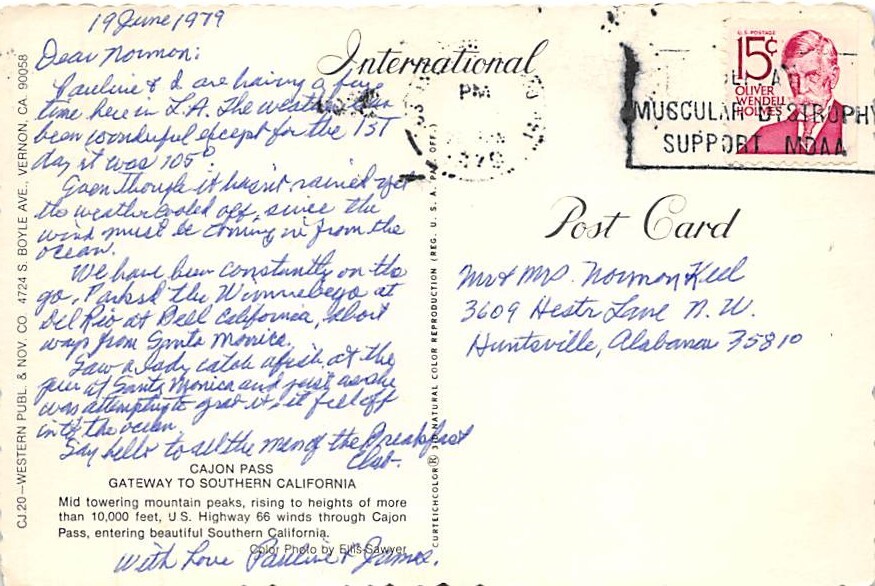 19 June 1979
Dear Norman:
Pauline & I are having a fine
time here in L.A. The weather has
been wonderful except for the 1ST
day it was 105°
Even though it hasn't rained yet
the weather cooled off, since the
wind must be coming in from the
ocean.
We have been constantly on the
go. Parked the Winnebego at
Del Rio at Bell California, short
ways from Santa Monica.
Saw a lady catch a fish at the
pier at Santa Monica and just as she
was attempting to grab it, it fell off
into the ocean.
Say hello to all the men of the Breakfast
Club.
CAJON PASS
GATEWAY TO SOUTHERN CALIFORNIA
Mid towering mountain peaks, rising to heights of more
than 10,000 feet, U.S. Highway 66 winds through Cajon
Pass, entering beautiful Southern California.
Color Photo by Ellis-Sawyer
With Love Pauline & James.
CJ.20—WESTERN PUBL. & NOV. CO. 4724 S. BOYLE AVE., VERNON, CA. 90058
CURTEICHCOLOR® 3-D NATURAL COLOR REPRODUCTION (REG. U. S. A. PAT. OFF.)
International
Post Card
PM
U.S. POSTAGE
15¢
OLIVER
WENDELL
HOLMES
MUSCULAR DYSTROPHY
SUPPORT MDAA
Mr & Mrs. Norman Keel
3609 Hestr Lane N.W.
Huntsville, Alabama 35810